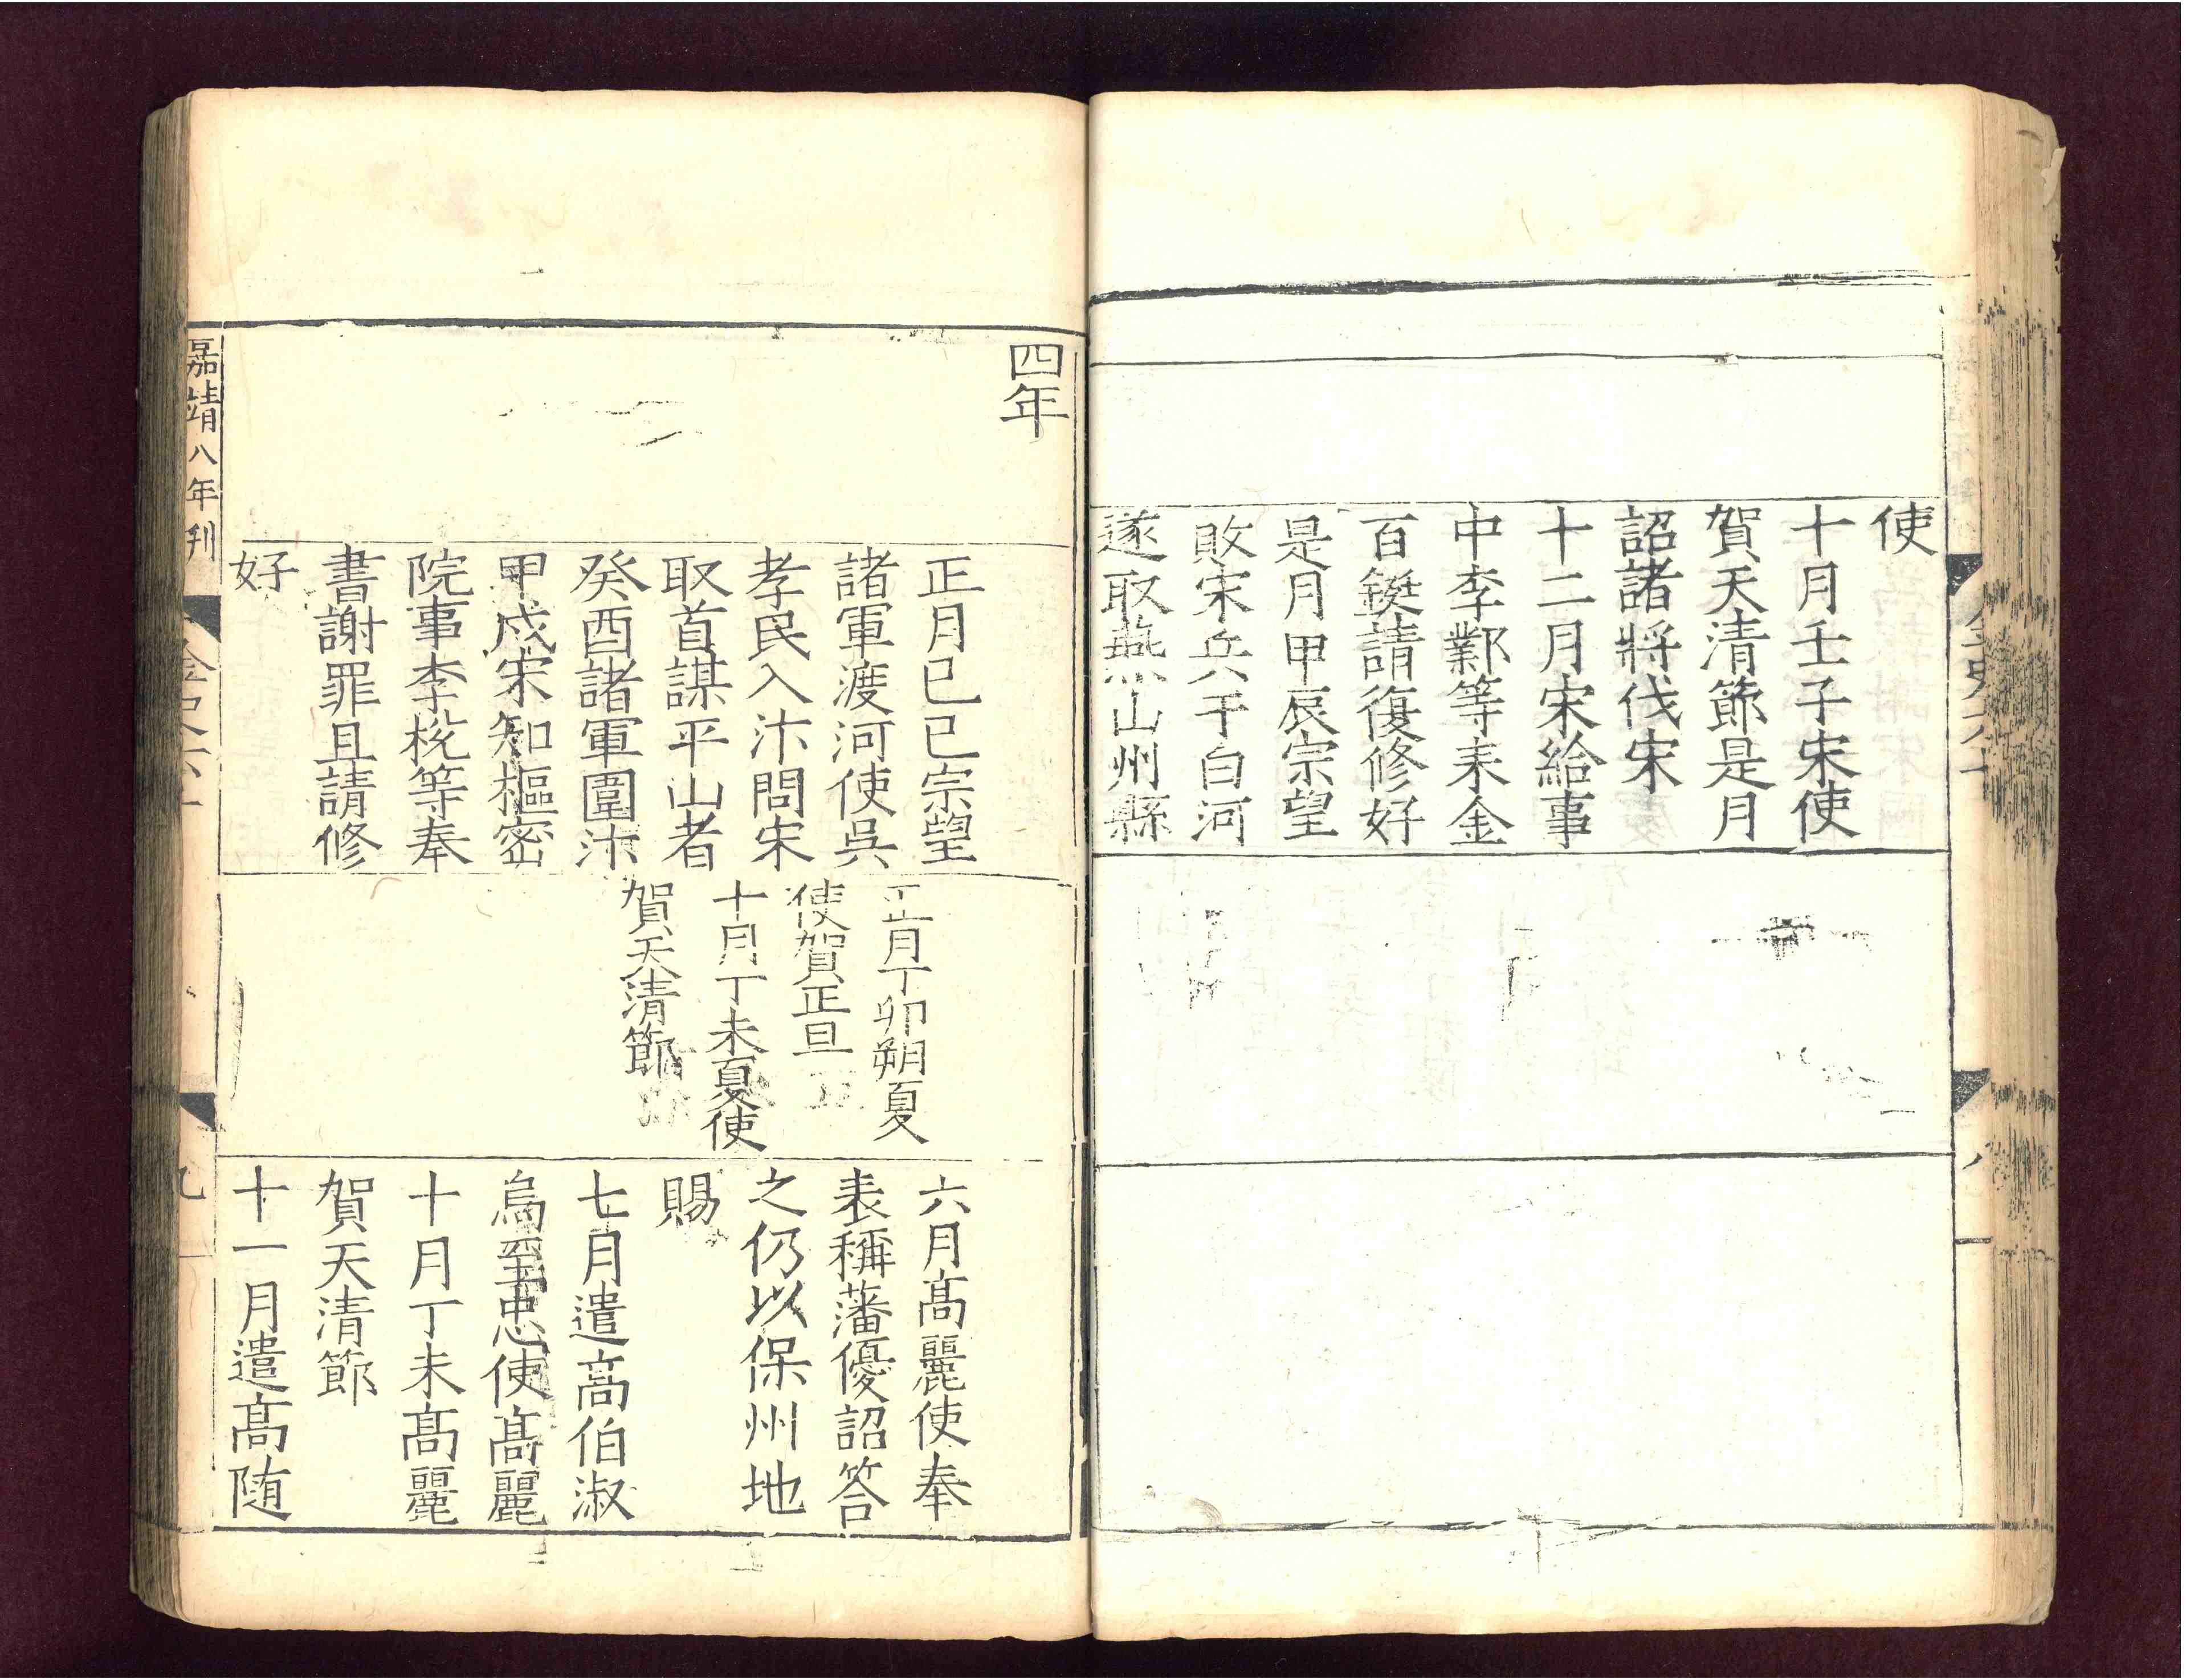 使
十月壬子宋使
賀天清節是月
詔諸將伐宋
十二月宋給事
中李鄴等來金
百鋌請復修好
是月甲辰宗望
敗宋兵于白河
遂取燕山州縣
四年
正月己巳宗望
諸軍渡河使吳
孝民入汴問宋
取首謀平山者
癸酉諸軍圍汴
甲戌宋知樞密
院事李梲等奉
書謝罪且請修
好
正月丁卯朔夏
使賀正旦
十月丁未夏使
賀天清節
六月高麗使奉
表稱藩優詔答
之仍以保州地
賜
七月遣高伯淑
烏至忠使高麗
十月丁未高麗
賀天清節
十一月遣高随
嘉靖八年刊
金史六十
九